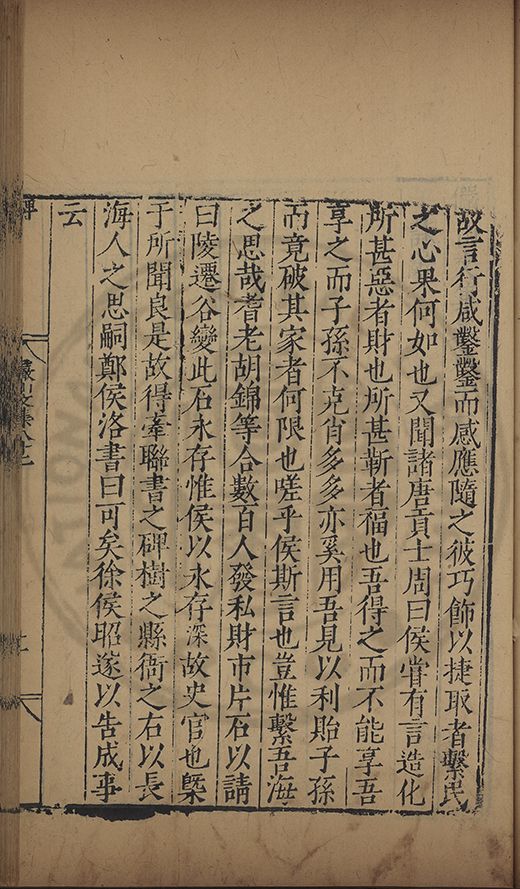 故言行咸鑿鑿而感應隨之彼巧飾以捷取者繫民
之心果何如也又聞諸唐貢士周曰侯嘗有言造化
所甚惡者財也所甚靳者福也吾得之而不能享吾
享之而子孫不克肖多多亦奚用吾見以利貽子孫
而竟破其家者何限也嗟乎侯斯言也豈惟繫吾海
之思哉耆老胡錦等合數百人發私財市片石以請
曰陵遷谷變此石永存惟侯以永存深故史官也槩
于所聞良是故得牽聯書之碑樹之縣衙之右以長
海人之思嗣鄭侯洛書曰可矣徐侯昭遂以告成事
云